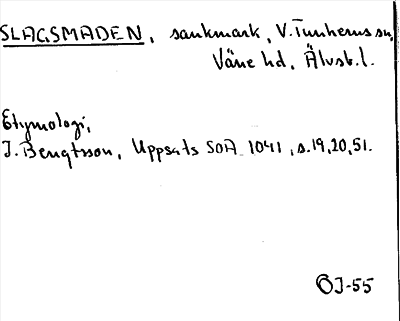 SLAGSMADEN, sankmark, V. Tunhems sn,
Väne hd, Älvsb. l.
Etymologi,
J. Bengtsson, Uppsats SOA 1041, s. 19, 20, 51.
ÖJ-55